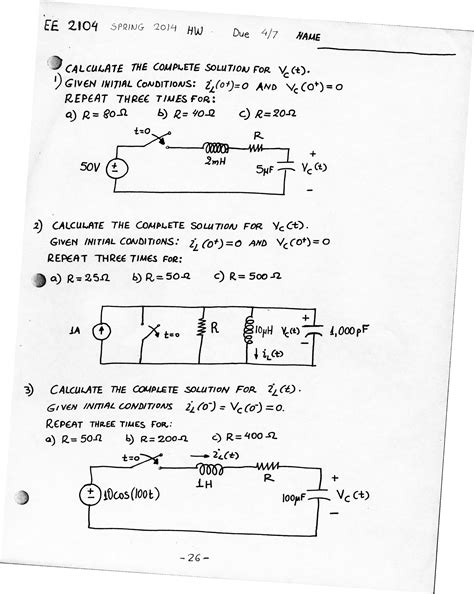 EE 2104 SPRING 2014 HW Due 4/7 NAME
CALCULATE THE COMPLETE SOLUTION FOR Vc(t).
1) GIVEN INITIAL CONDITIONS: iL(0+)=0 AND Vc(0+)=0
REPEAT THREE TIMES FOR:
a) R=80Ω b) R=40Ω c) R=20Ω
t=0
R
2mH
+
50V
+
-
5μF
Vc(t)
-
2) CALCULATE THE COMPLETE SOLUTION FOR Vc(t).
GIVEN INITIAL CONDITIONS: iL(0+)=0 AND Vc(0+)=0
REPEAT THREE TIMES FOR:
a) R=25Ω b) R=50Ω c) R=500Ω
+
1A
t=0
R
10μH
Vc(t)
1,000pF
-
iL(t)
3) CALCULATE THE COMPLETE SOLUTION FOR iL(t).
GIVEN INITIAL CONDITIONS iL(0-) = Vc(0-) = 0.
REPEAT THREE TIMES FOR:
a) R=50Ω b) R=200Ω c) R=400Ω
t=0
iL(t)
1H
R
+
+
-
10cos(100t)
100μF
Vc(t)
-
-26-